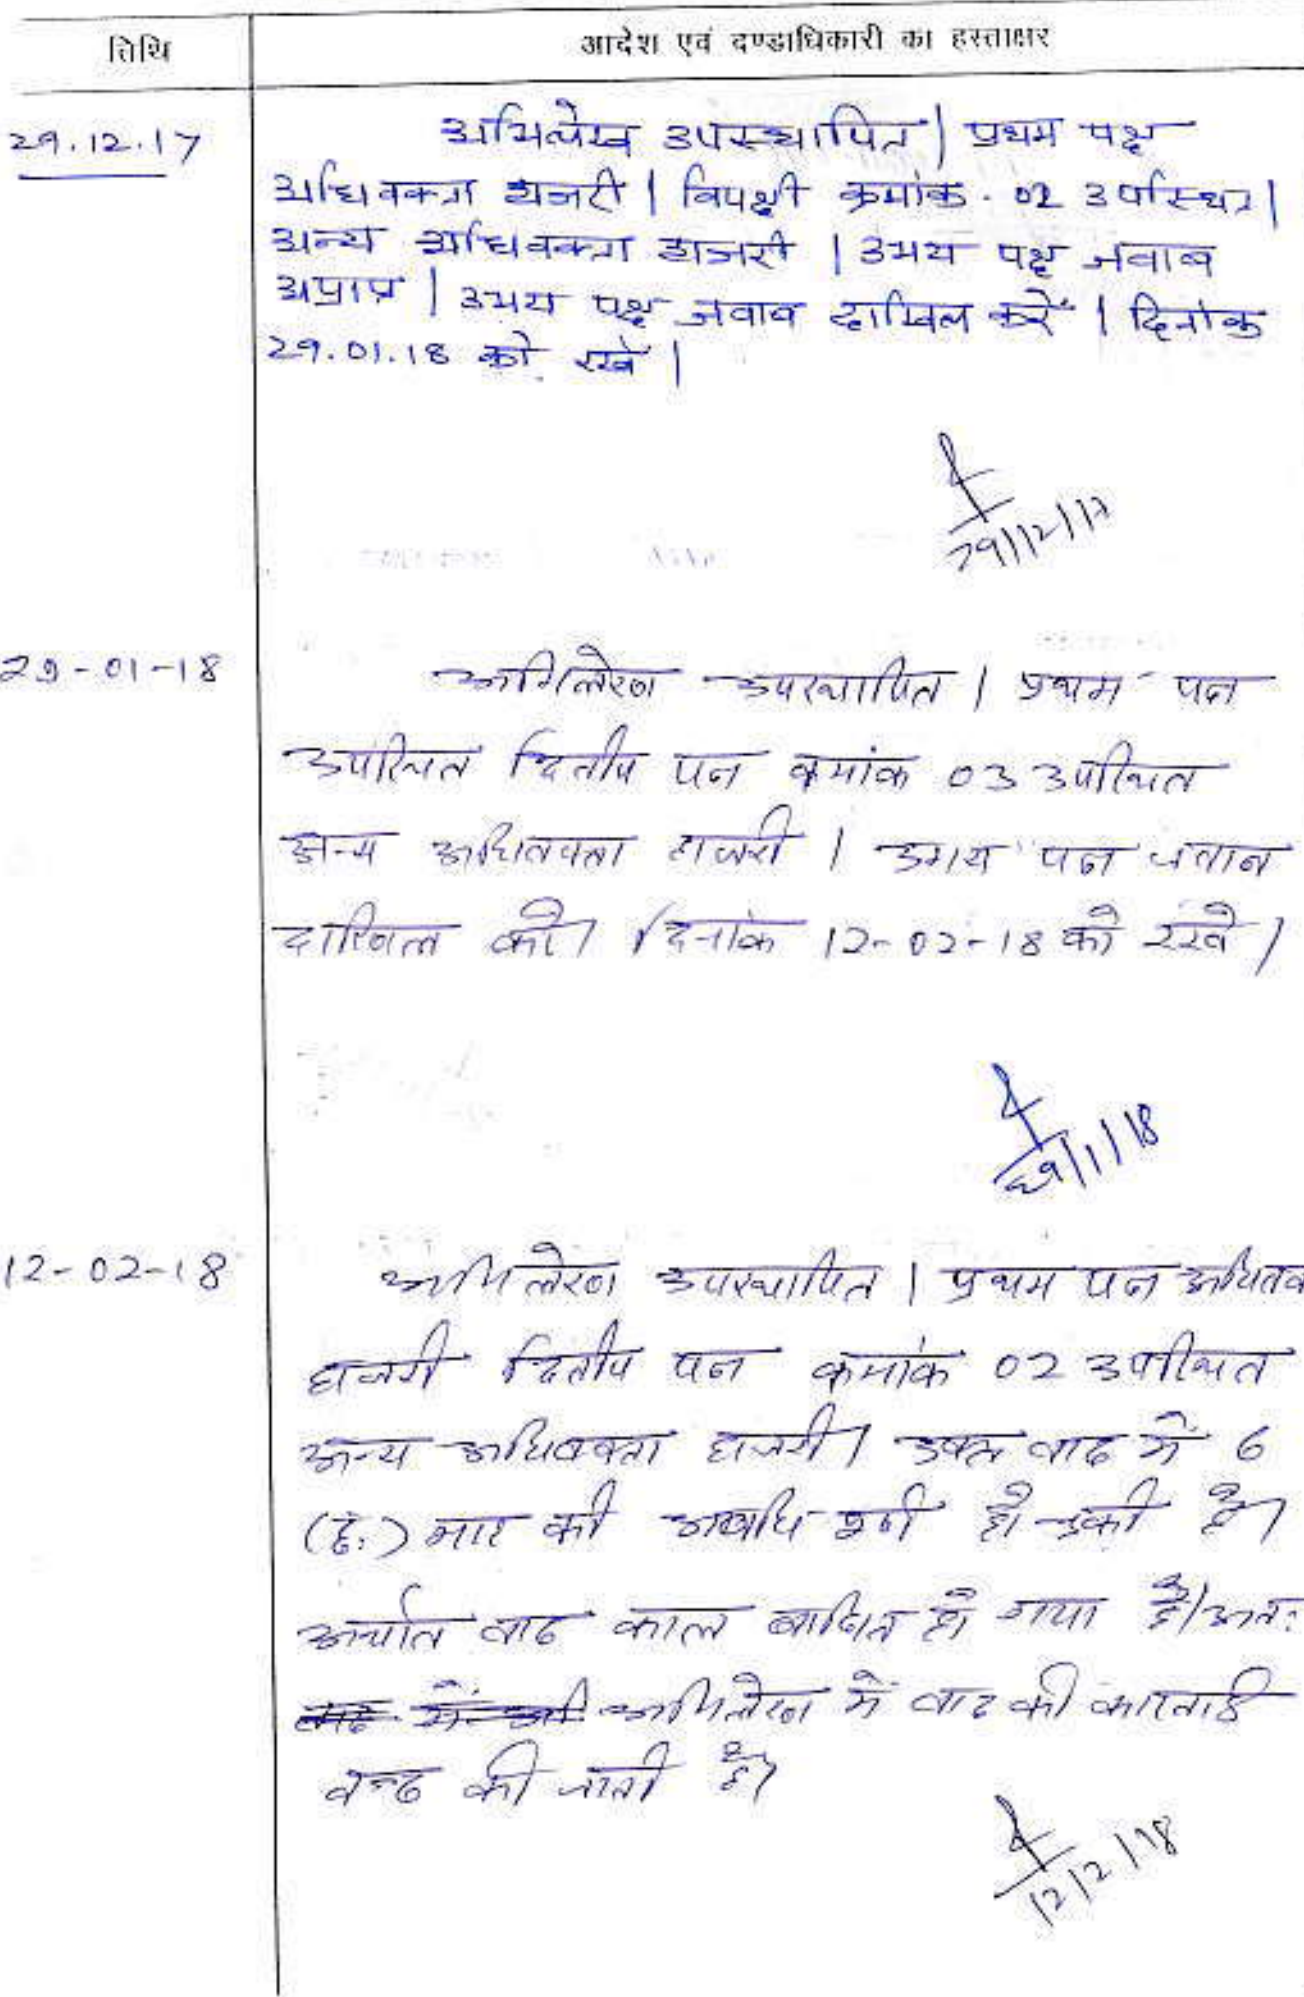 तिथि
आदेश एवं दण्डाधिकारी का हस्ताक्षर
29.12.17
अभिलेख उपस्थापित | प्रथम पक्ष
अधिवक्ता हाजरी | विपक्षी क्रमांक - 02 उपस्थित |
अन्य अधिवक्ता हाजरी | उभय पक्ष जवाब
अप्राप्त | उभय पक्ष जवाब दाखिल करें | दिनांक
29.01.18 को रखें |
29/12/17
29-01-18
अभिलेख उपस्थापित | प्रथम पक्ष
उपस्थित द्वितीय पक्ष क्रमांक 03 उपस्थित
अन्य अधिवक्ता हाजरी | उभय पक्ष जवाब
दाखिल करें | दिनांक 12-02-18 को रखे |
29/1/18
12-02-18
अभिलेख उपस्थापित | प्रथम पक्ष अधिवक
हाजरी द्वितीय पक्ष क्रमांक 02 उपस्थित
अन्य अधिवक्ता हाजरी | उक्त वाद में 6
(छ:) माह की अवधि पूर्ण हो चुकी है |
अर्थात वाद काल बाधित हो गया है | अत:
अभिलेख में वाद की कारवाई
बन्द की जाती है |
12/2/18